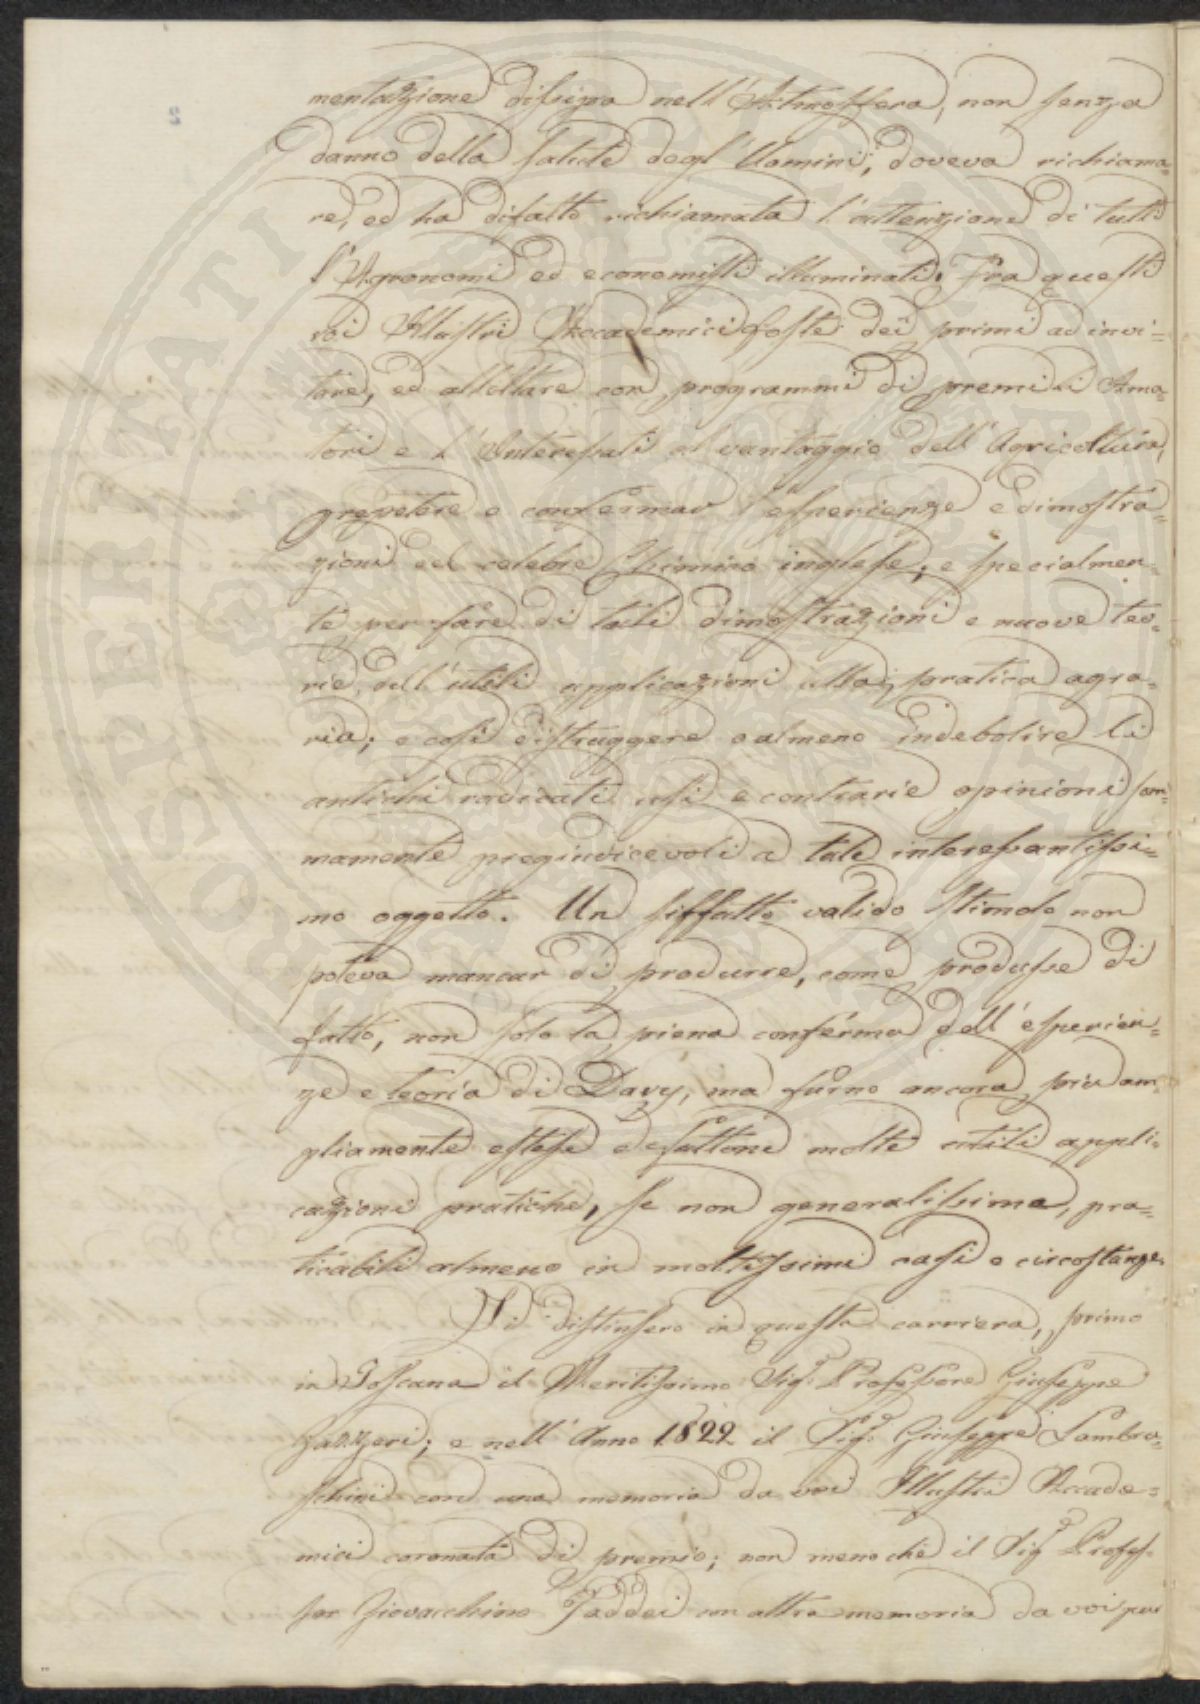 mentazione dissipa nell'Atmosfera, non senza
danno della salute degl'Uomini, doveva richiama=
re, ed ha difatto richiamata l'attenzione di tutti
l'Agronomi ed economisti illuminati. Fra questi
voi Illustri Accademici foste dei primi ad invi=
tare, ed allettare con programmi di premi li Ama=
tori e l'Interessati al vantaggio dell'Agricoltura,
a repetere e confermar l'esperienze e dimostra=
zioni del celebre Chimico inglese, e specialmen=
te per fare di tali dimostrazioni e nuove teo=
rie, dell'utili applicazioni alla pratica agra=
ria; e così distruggere o almeno indebolire li
antichi radicati usi e contrarie opinioni som=
mamente pregiudicevoli a tale interessantissi=
mo oggetto. Un siffatto valido stimolo non
poteva mancar di produrre, come produsse di
fatto, non solo la piena conferma dell'esperien=
ze e teoria di Davy, ma furno ancora più am=
pliamente estese e fattone molte utili appli=
cazioni pratiche, se non generalissime, pra=
ticabili almeno in moltissimi casi e circostanze.
Si distinsero in questa carriera, primo
in Toscana il Meritissimo Sig.r Professore Giuseppe
Gazzeri; e nell'Anno 1822 il Sig.r Giuseppe Lambru=
schini con una memoria da voi Illustri Accade=
mici coronata di premio; non meno che il Sig.r Profes=
sor Giovacchino Taddei con altra memoria da voi pur